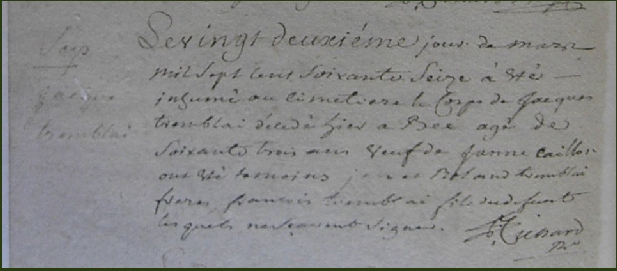 Sep
jacque
tremblai
Le vingt deuxiéme jour de mars
mil Sept Cens Soixante Seize à été
inhumé au Cimetiere le Corps de Jacques
tremblai décédé hier a agé de
Soixante trois ans veuf de janne caillon
ont été temoins Roland tremblai
freres françois tremblai fils du defunt
lesquels ne sçavent Signer.